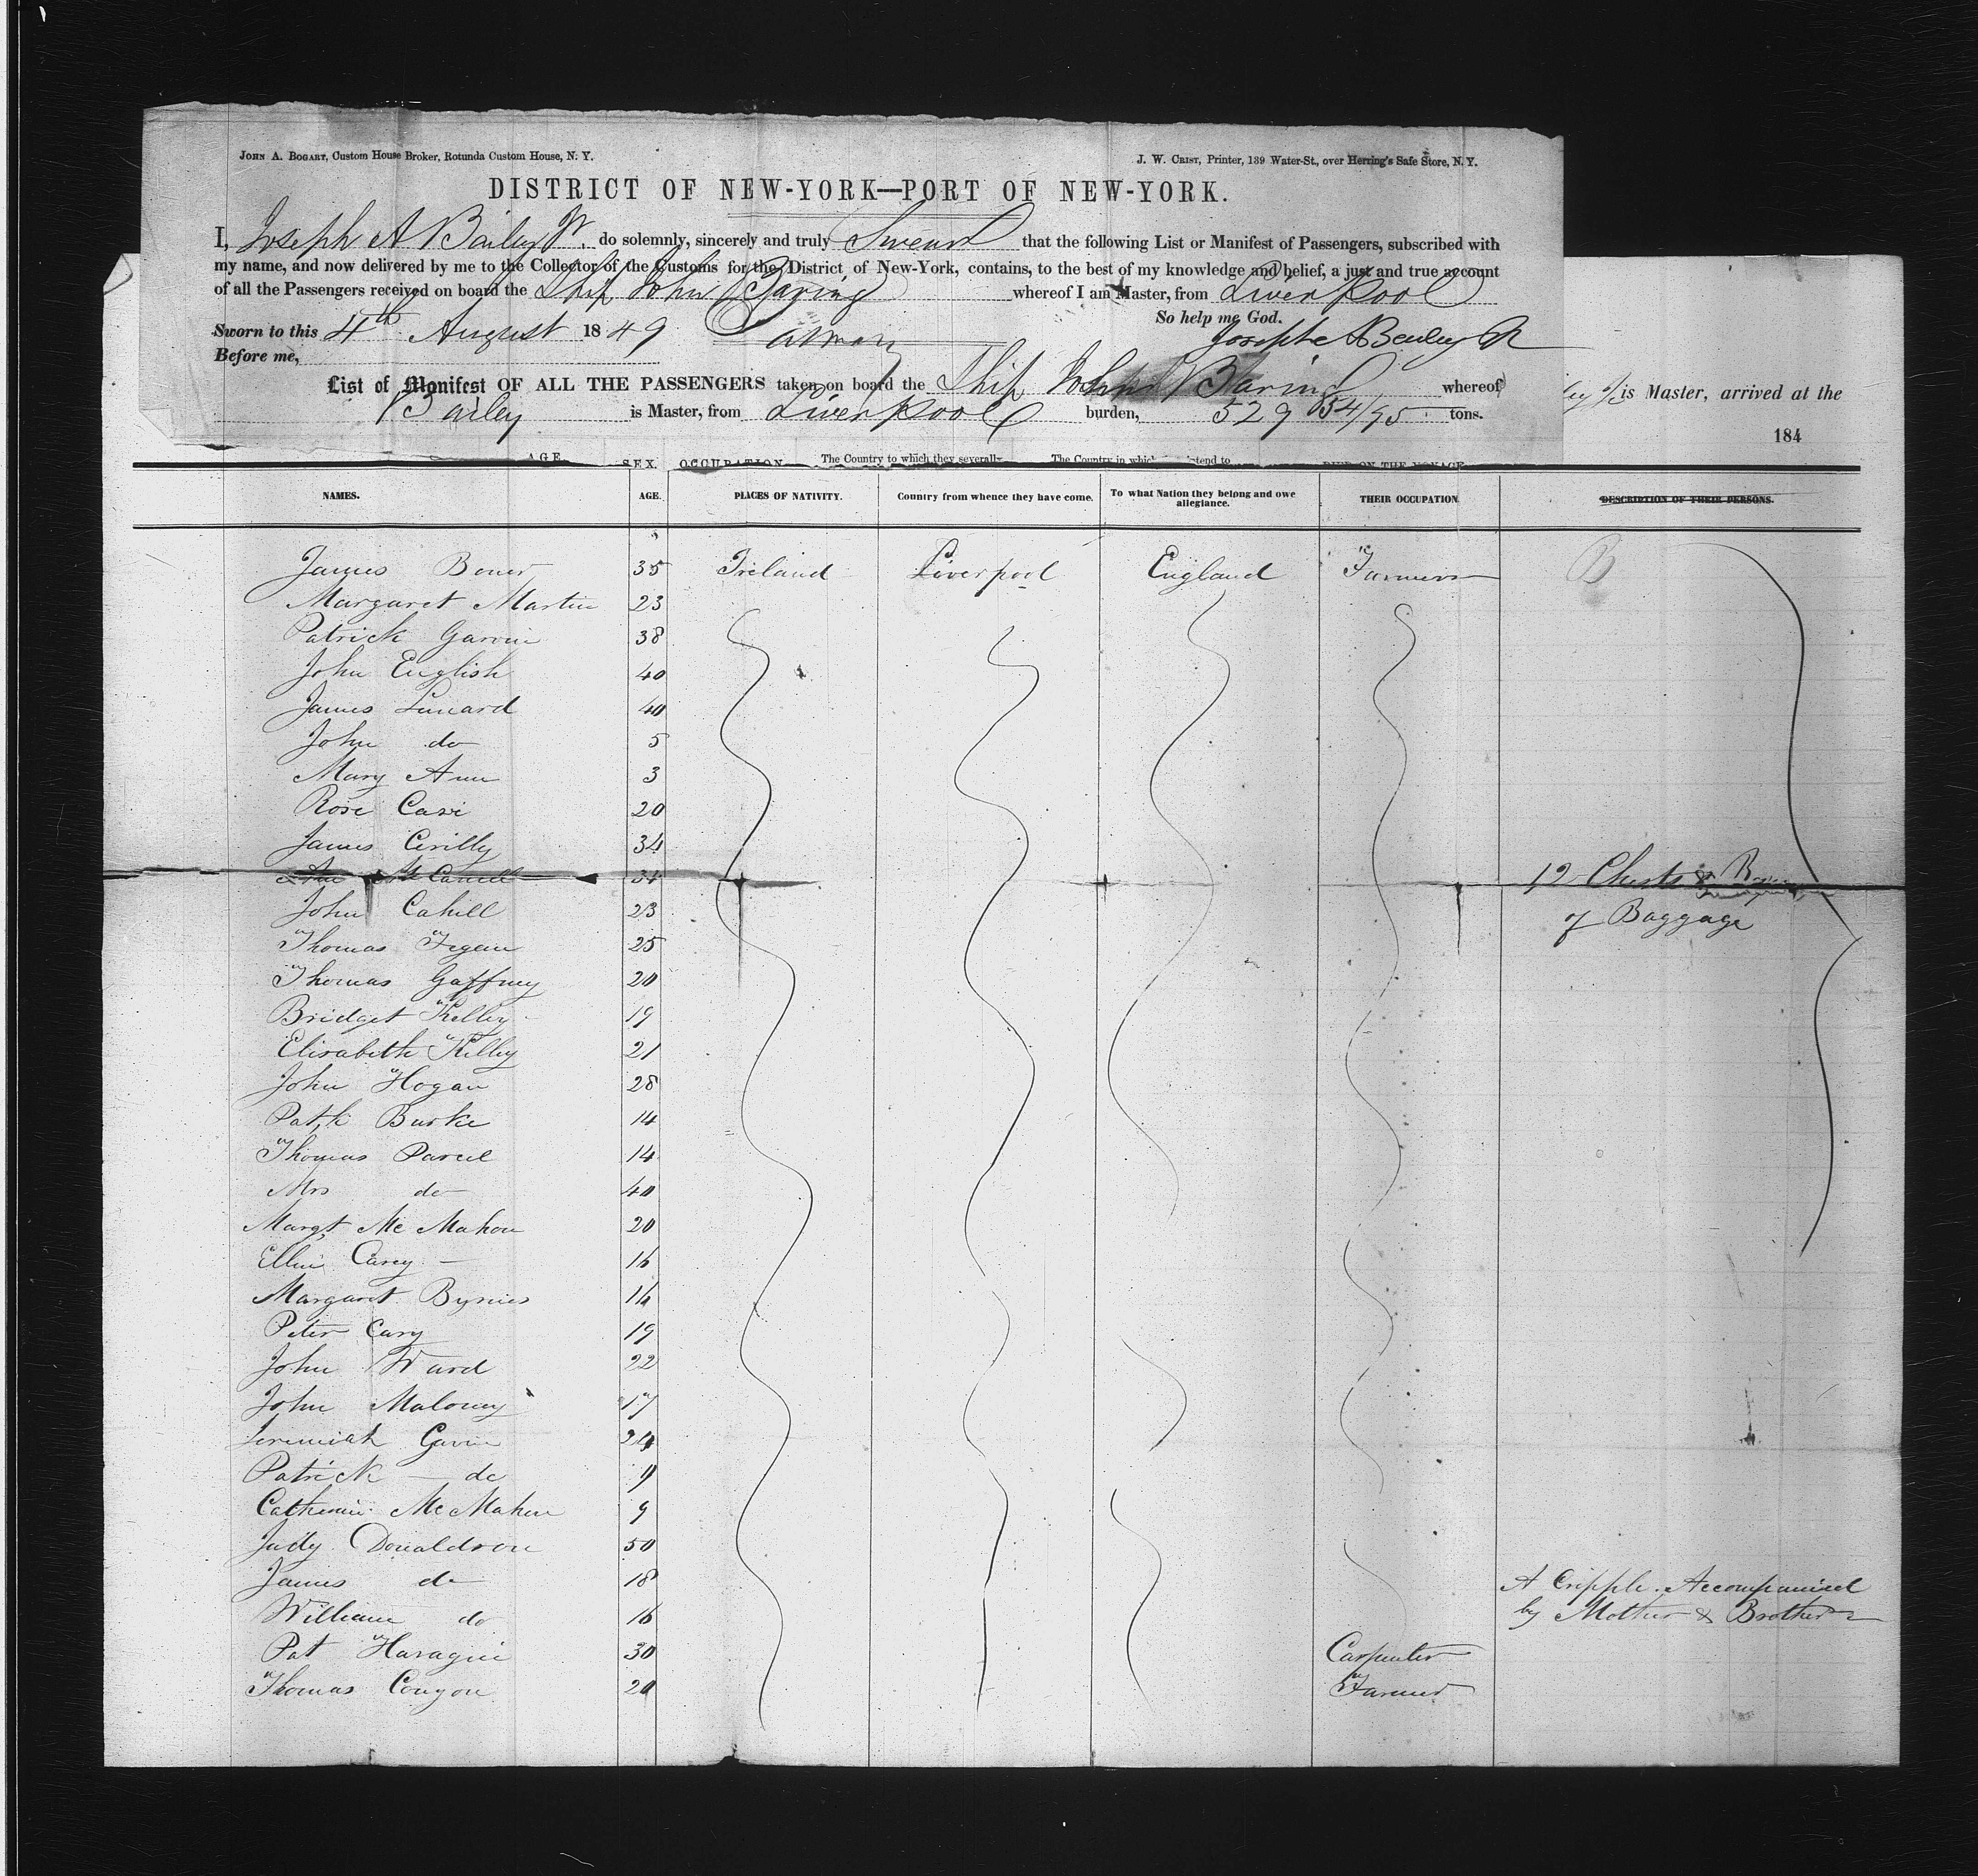 JOHN A. BOGART, Custom House Broker, Rotunda Custom House, N. Y.
J. W. CRIST, Printer, 139 Water-St., over Herring's Safe Store, N. Y.
DISTRICT OF NEW-YORK—PORT OF NEW-YORK.
I, Joseph A Bailey Jr. do solemnly, sincerely and truly Swear that the following List or Manifest of Passengers, subscribed with
my name, and now delivered by me to the Collector of the Customs for the District of New-York, contains, to the best of my knowledge and belief, a just and true account
of all the Passengers received on board the Ship John Baring whereof I am Master, from Liverpool
So help me God.
Sworn to this 4th August 1849
Joseph A Bailey Jr
Before me,
List of Manifest OF ALL THE PASSENGERS taken on board the Ship John Baring whereof
Bailey is Master, from Liverpool burden, 529 54/95 tons.
is Master, arrived at the
184
AGE SEX. OCCUPATION The Country to which they severally The Country in which intend to DIED ON THE VOYAGE
NAMES. AGE. PLACES OF NATIVITY. Country from whence they have come. To what Nation they belong and owe allegiance. THEIR OCCUPATION. DESCRIPTION OF THEIR PERSONS.
James 35 Ireland Liverpool England Farmers
Margaret Martin 23
Patrick Garvin 38
John English 40
James 40
John do 5
Mary Ann 3
Rose 20
James 34
34
12 Chests &
John Cahill 23
of Baggage
Thomas Fegan 25
Thomas Gaffney 20
Bridget Kelley 19
Elisabeth Kelley 21
John Hogan 28
Patk Burke 14
Thomas 14
Mrs do 40
Margt Mc Mahon 20
Ellin Carey 16
Margaret Byrnes
Peter Cary 19
John Ward 22
John Maloney 17
Jeremiah 24
Patrick — do 9
Catherine McMahon 9
Judy Donaldson 50
James do 18 A Cripple. Accompanied
William do 16 by Mother & Brother
Pat 30 Carpenter
Thomas 20 Farmer